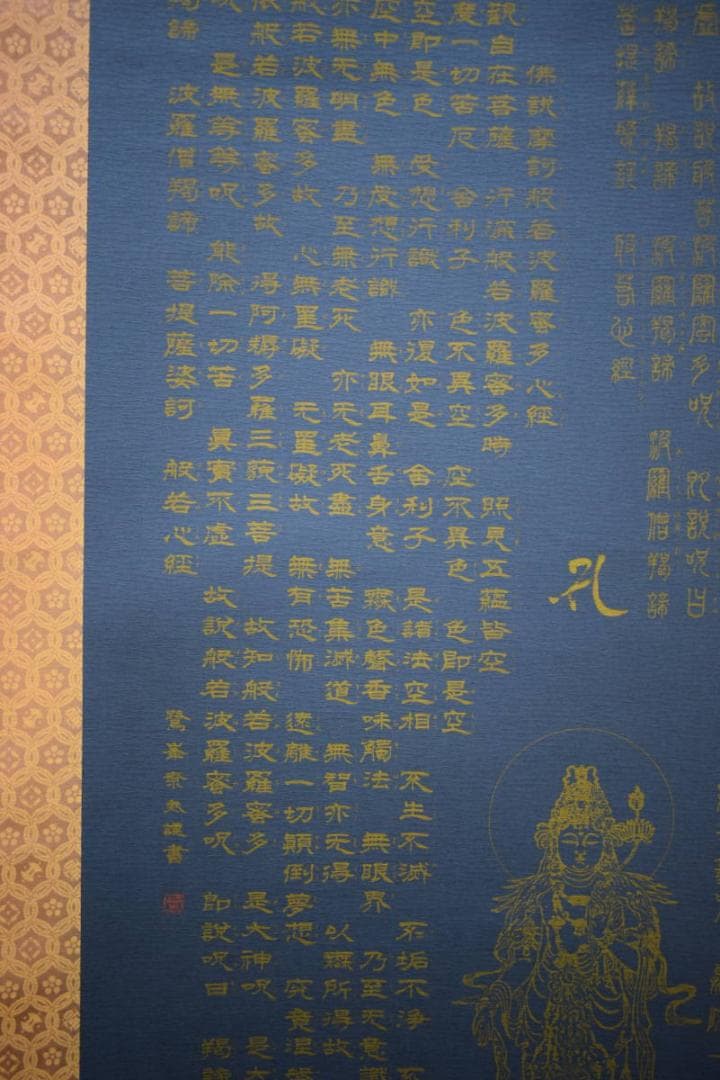 虛 故說般若波羅密多呪 即說呪曰
羯諦 羯諦 波羅羯諦 波羅僧羯諦
菩提薩婆訶 般若心經
佛說摩訶般若波羅蜜多心經
觀自在菩薩 行深般若波羅蜜多時 照見五蘊皆空
度一切苦厄 舍利子 色不異空 空不異色 色即是空
空即是色 受想行識 亦復如是 舍利子 是諸法空相 不生不滅 不垢不淨 不
空中無色 無受想行識 無眼耳鼻舌身意 無色聲香味觸法 無眼界 乃至无意識
亦無无明盡 乃至無老死 亦无老死盡 無苦集滅道 無智亦无得 以無所得故
般若波羅蜜多故 心無罣礙 无罣礙故 無有恐怖 遠離一切顛倒夢想 究竟涅槃
依般若波羅蜜多故 得阿耨多羅三藐三菩提 故知般若波羅蜜多 是大神呪 是大
呪 是無等等呪 能除一切苦 眞實不虛 故說般若波羅蜜多呪 即說呪曰 羯諦
羯諦 波羅僧羯諦 菩提薩婆訶 般若心經
鷲峯 謹書